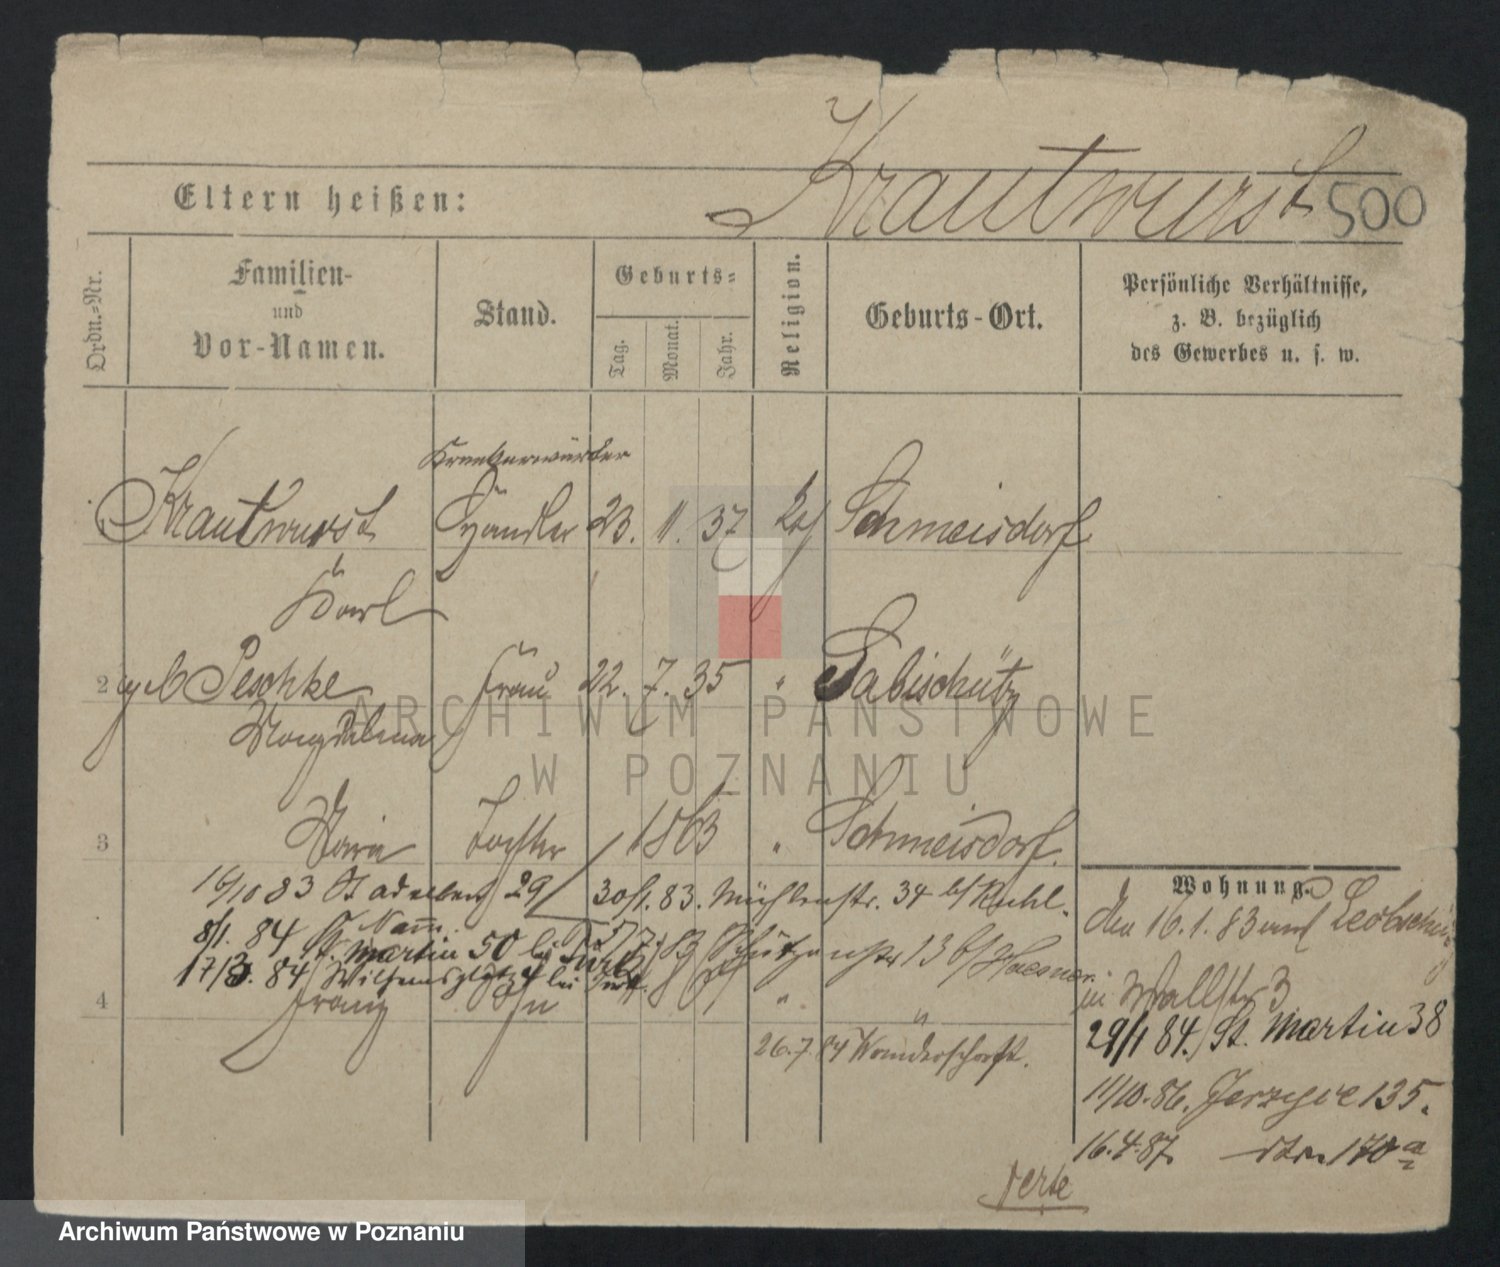 Krautwurst 500
Eltern heißen:
Ordn.=Nr.
Familien-
und
Vor-Namen.
Stand.
Geburts=
Tag.
Monat.
Jahr.
Religion.
Geburts-Ort.
Persönliche Verhältnisse,
z. B. bezüglich
des Gewerbes u. s. w.
Krautwurst Händler 23. 11. 37 Schmeisdorf
Karl
2 geb Peschke Frau 22. 7. 35 " Babischütz
Magdalena
ARCHIWUM PAŃSTWOWE
W POZNANIU
3 Maria Tochter 1863 " Schmeisdorf.
16/10 83 St Adalbert 29 30/1. 83. Mühlenstr. 34 b/ Ruhl.
8/1. 84 St. Martin 50 bei 83 Schützenstr 13 b/
17/3. 84 Wilhelmsplatz 4 bei
4 Franz " "
26.7.84 Wanderschaft.
Wohnung.
den 16.1.83 aus Leobschütz
in Wallstr 3
29/1 84. St. Martin 38
11/10.86. Jerzyce 135.
16.4.87. dto. 170 a
verte
Archiwum Państwowe w Poznaniu